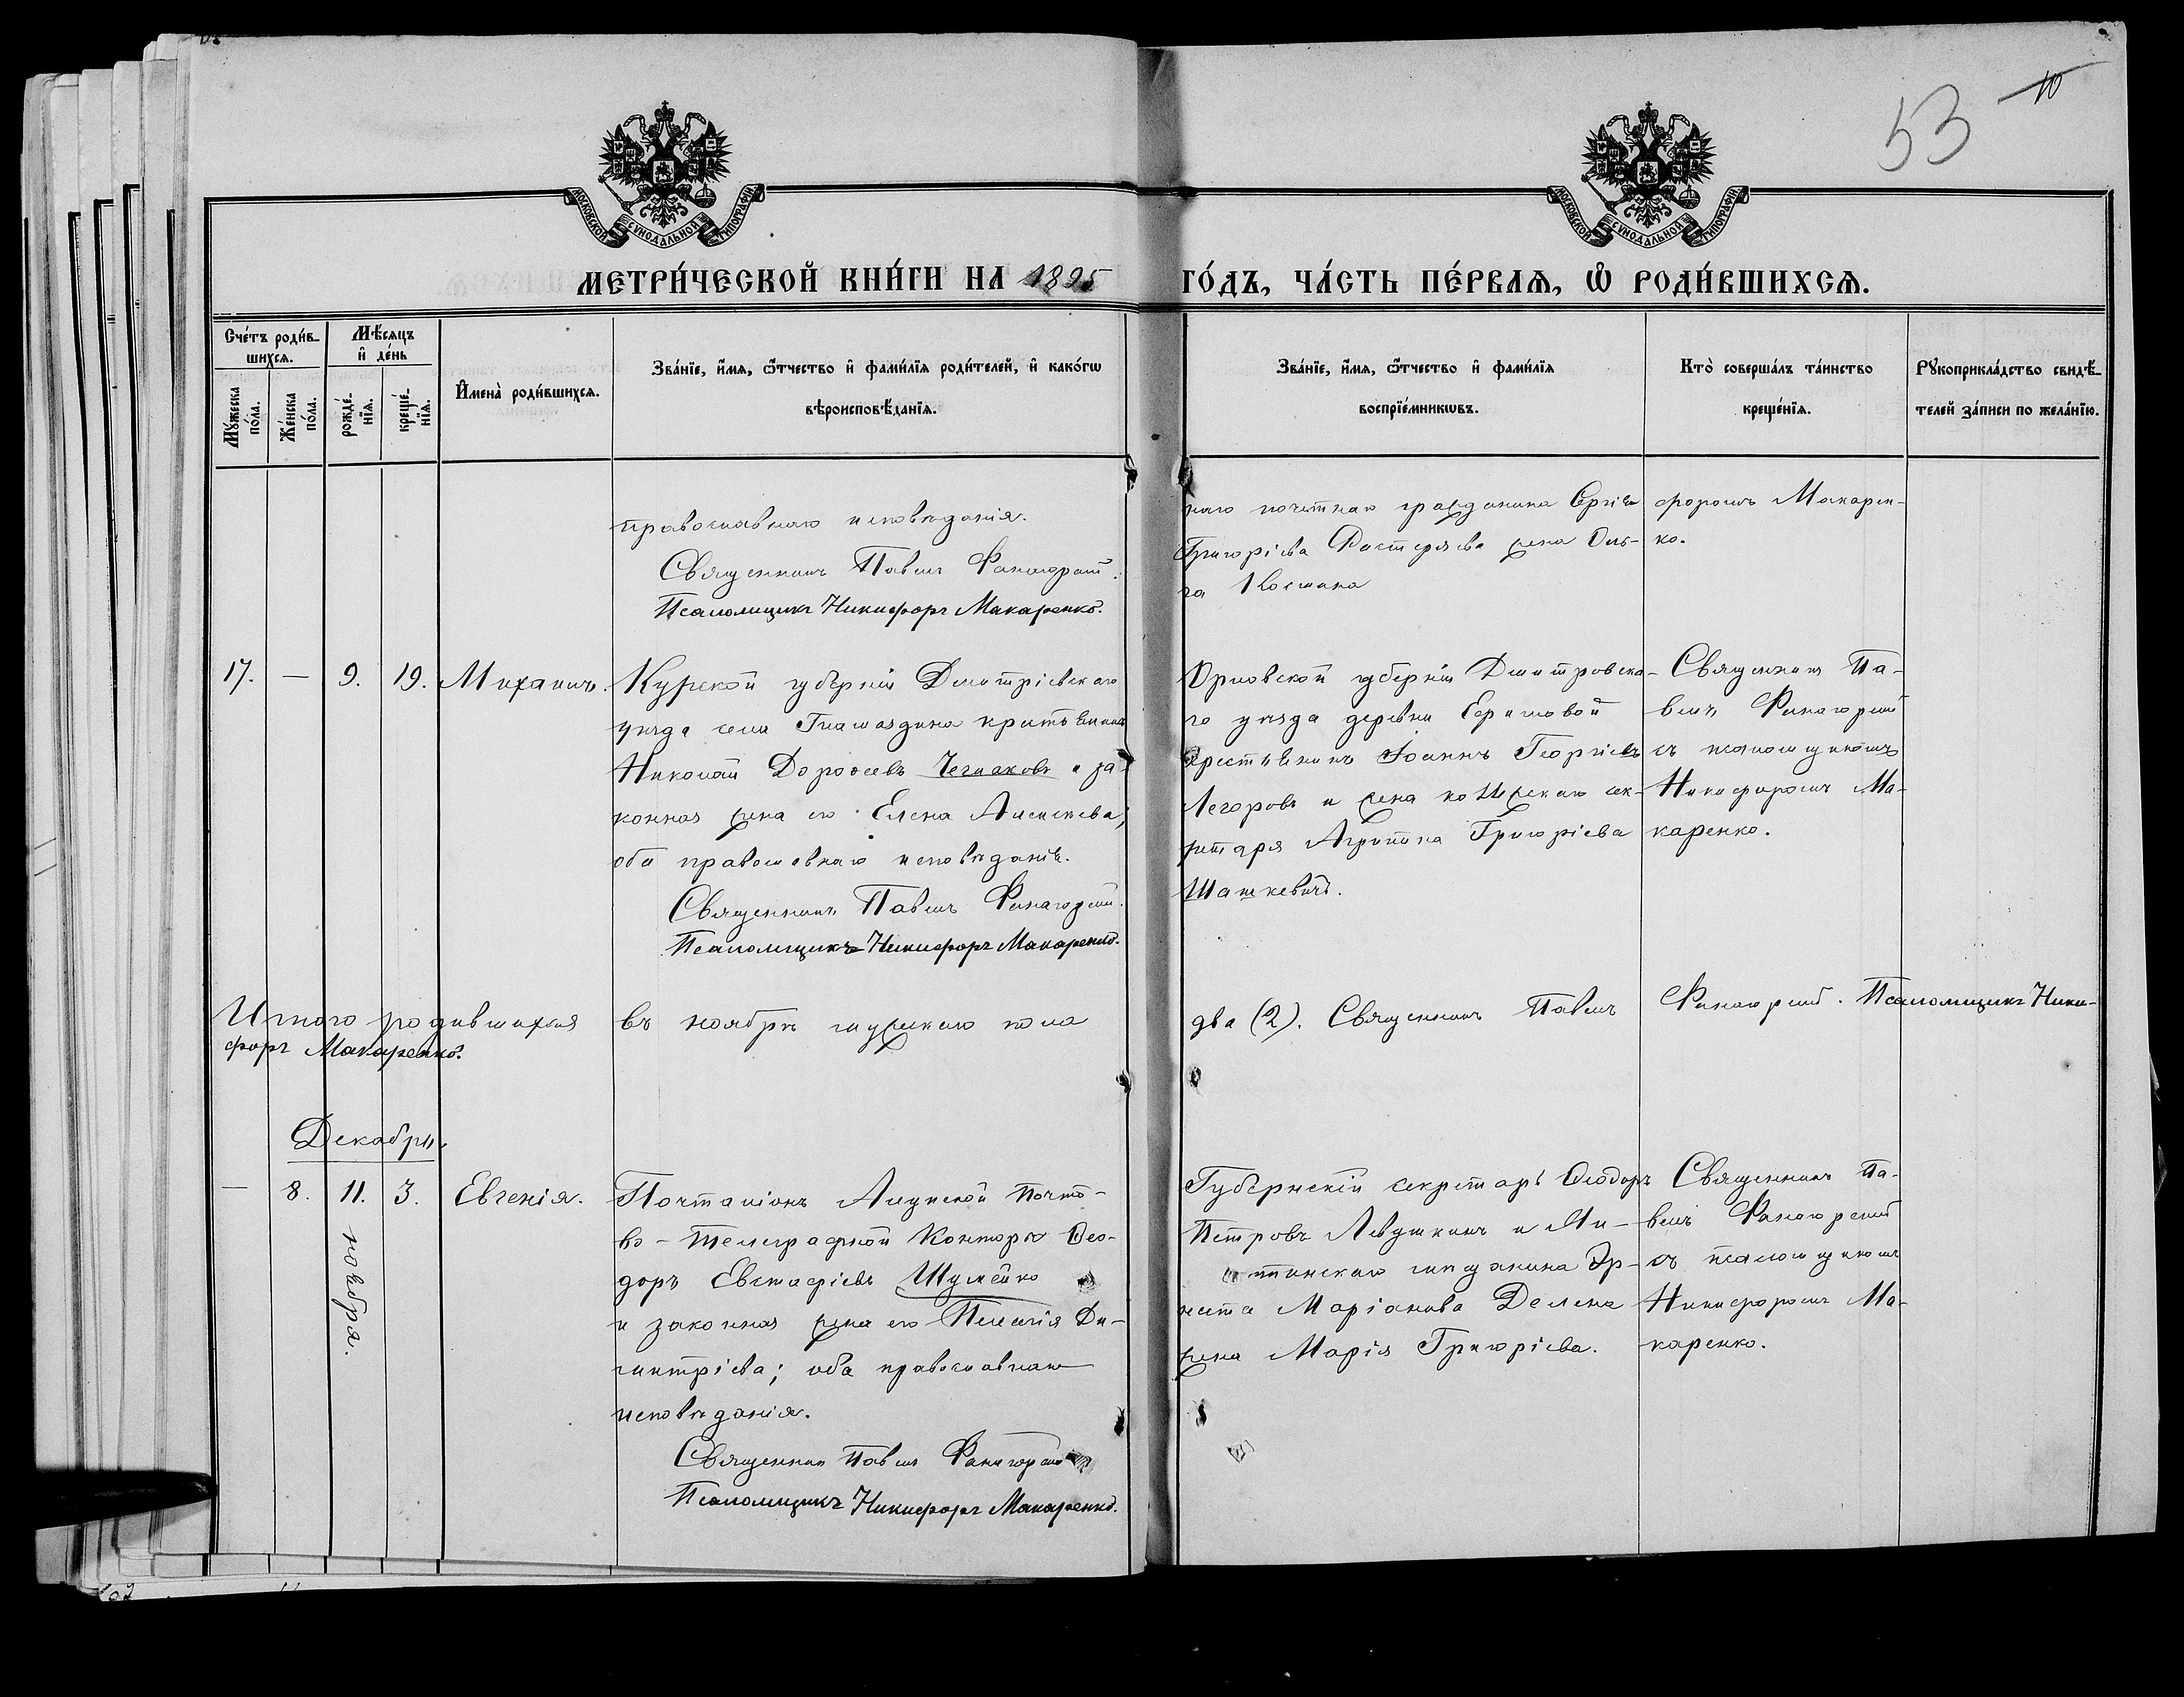 53 10
МОСКОВСКОЙ СѴНОДАЛЬНОЙ ТИПОГРАФІИ
МОСКОВСКОЙ СѴНОДАЛЬНОЙ ТИПОГРАФІИ
МЕТРИ́ЧЕСКОЙ КНИ́ГИ НА 1895 ГО́ДЪ, ЧА́СТЬ ПЕ́РВАѦ, Ѡ҆ РОДИ́ВШИХСѦ.
Сче́тъ роди́в-
шихсѧ.
Мꙋ́жеска по́ла.
Же́нска по́ла.
Мѣ́сяцъ
и҆ де́нь
рожде́-нїѧ.
креще́-нїѧ.
И҆мена̀ роди́вшихсѧ.
Зва́нїе, и҆́мѧ, ѻ҆́тчество и҆ фами́лїѧ роди́телей, и҆ како́гѡ
вѣроисповѣ́данїѧ.
Зва́нїе, и҆́мѧ, ѻ҆́тчество и҆ фами́лїѧ
воспрїе́мникѡвъ.
Кто̀ соверша́лъ та́инство
креще́нїѧ.
Рꙋкоприкла́дство свидѣ́-
телей за́писи по жела́нїю.
православнаго исповѣданія.
Священникъ Павелъ
Псаломщикъ Никифоръ Макаренко.
наго почетнаго гражданина Сергія
Григоріева жена Оль-
га
форомъ Макарен-
ко.
17. — 9. 19. Михаилъ.
Курской губерніи Дмитріевскаго
уѣзда села крестьянинъ
Николай Дороѳеевъ и за-
конная жена его Елена Алексѣева,
оба православнаго исповѣданія.
Священникъ Павелъ
Псаломщикъ Никифоръ Макаренко.
Орловской губерніи Дмитровска-
го уѣзда деревни
крестьянинъ Іоаннъ Георгіевъ
и жена коллежскаго сек-
ретаря Агрипина Григоріева
Шашкевичъ.
Священникъ Па-
велъ
съ псаломщикомъ
Никифоромъ Ма-
каренко.
Итого родившихся въ ноябрѣ мужескаго пола два (2). Священникъ Павелъ Псаломщикъ Ники-
форъ Макаренко.
Декабрь.
— 8. 11. 3. Евгенія.
ноября.
Почталіонъ Почто-
во-Телеграфной Конторы Ѳео-
доръ Евстафіевъ Шумейко
и законная жена его Пелагія Ди-
митріева; оба православнаго
исповѣданія.
Священникъ Павелъ
Псаломщикъ Никифоръ Макаренко.
Губернскій секретарь Ѳеодоръ
Петровъ Левушкинъ и
мѣщанина Эр-
неста Маріанова
жена Марія Григоріева.
Священникъ Па-
велъ
съ псаломщикомъ
Никифоромъ Ма-
каренко.